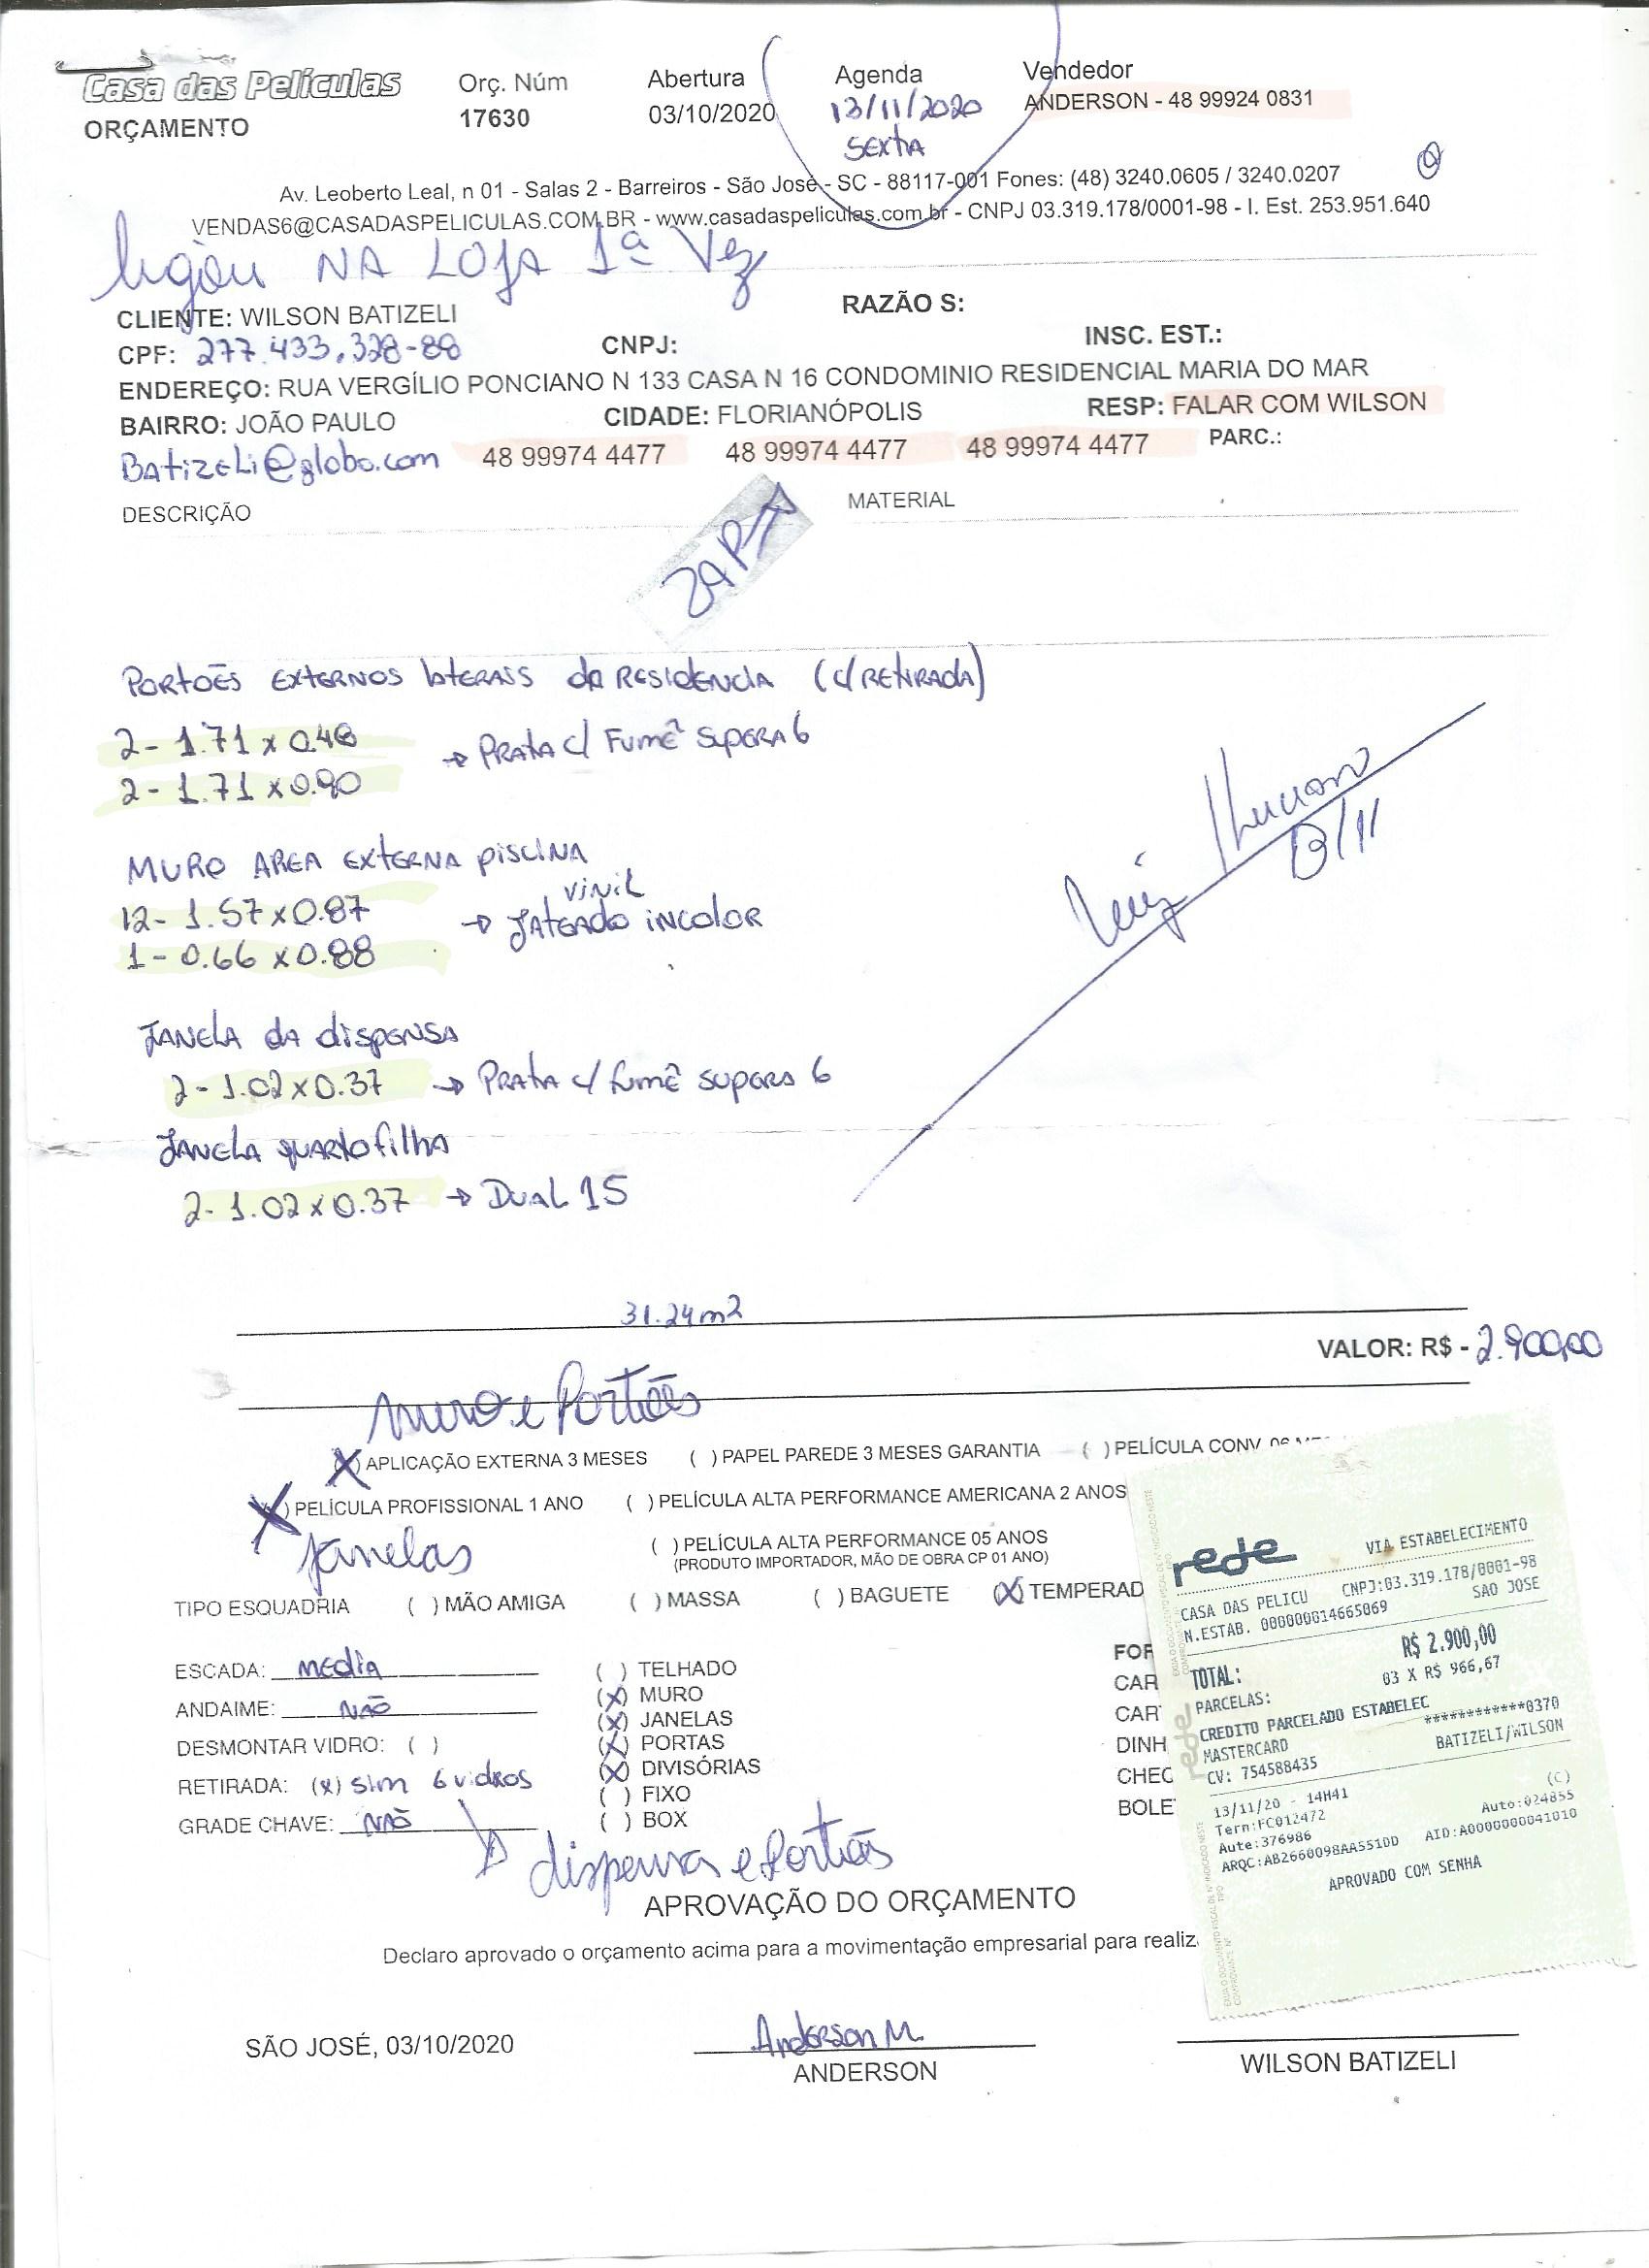 Casa das Películas
ORÇAMENTO
Orç. Núm
17630
Abertura
03/10/2020
Agenda
13/11/2020
SEXTA
Vendedor
ANDERSON - 48 99924 0831
Av. Leoberto Leal, n 01 - Salas 2 - Barreiros - São José - SC - 88117-001 Fones: (48) 3240.0605 / 3240.0207
VENDAS6@CASADASPELICULAS.COM.BR - www.casadaspeliculas.com.br - CNPJ 03.319.178/0001-98 - I. Est. 253.951.640
ligou NA LOJA 1ª Vez
CLIENTE: WILSON BATIZELI
RAZÃO S:
CPF: 277.433.328-88
CNPJ:
INSC. EST.:
ENDEREÇO: RUA VERGÍLIO PONCIANO N 133 CASA N 16 CONDOMINIO RESIDENCIAL MARIA DO MAR
BAIRRO: JOÃO PAULO
CIDADE: FLORIANÓPOLIS
RESP: FALAR COM WILSON
BATIZELI@globo.com
48 99974 4477
48 99974 4477
48 99974 4477
PARC.:
DESCRIÇÃO
MATERIAL
ZAP
PORTOES EXTERNOS laterais da RESIDENCIA (c/ RETIRADA)
2- 1.71 x 0.48
→ PRATA c/ FUMÊ SUPERA 6
2- 1.71 x 0.90
MURO AREA EXTERNA PISCINA
12- 1.57 x 0.87
→ JATEADO INCOLOR
vinil
1- 0.66 x 0.88
Luiz / Luciano
13/11
JANELA da dispensa
2- 1.02 x 0.37 → PRATA c/ fumê SUPERA 6
JANELA quarto filha
2- 1.02 x 0.37 → DUAL 15
31.24 m2
VALOR: R$ - 2.900,00
muro e Portões
(X) APLICAÇÃO EXTERNA 3 MESES ( ) PAPEL PAREDE 3 MESES GARANTIA ( ) PELÍCULA CONV. 06
(X) PELÍCULA PROFISSIONAL 1 ANO ( ) PELÍCULA ALTA PERFORMANCE AMERICANA 2 ANOS
janelas
( ) PELÍCULA ALTA PERFORMANCE 05 ANOS
(PRODUTO IMPORTADOR, MÃO DE OBRA CP 01 ANO)
TIPO ESQUADRIA ( ) MÃO AMIGA ( ) MASSA ( ) BAGUETE (X) TEMPERAD
ESCADA: media
ANDAIME: NÃO
DESMONTAR VIDRO: ( )
RETIRADA: (x) sim 6 vidros
GRADE CHAVE: NÃO
dispensa e Portões
( ) TELHADO
(X) MURO
(X) JANELAS
(X) PORTAS
(X) DIVISÓRIAS
( ) FIXO
( ) BOX
FOR
CAR
CAR
DINH
CHEC
BOLE
rede
VIA ESTABELECIMENTO
CASA DAS PELICU CNPJ:03.319.178/0001-98
N.ESTAB. 000000014665069 SAO JOSE
TOTAL: R$ 2.900,00
PARCELAS: 03 X R$ 966,67
CREDITO PARCELADO ESTABELEC
MASTERCARD ************0370
CV: 754588435 BATIZELI/WILSON
13/11/20 - 14H41 (C)
Term:FC012472 Auto:024855
Aute:376986
ARQC:AB2660098AA551DD AID:A0000000041010
APROVADO COM SENHA
APROVAÇÃO DO ORÇAMENTO
Declaro aprovado o orçamento acima para a movimentação empresarial para realiz
SÃO JOSÉ, 03/10/2020
Anderson M.
ANDERSON
WILSON BATIZELI